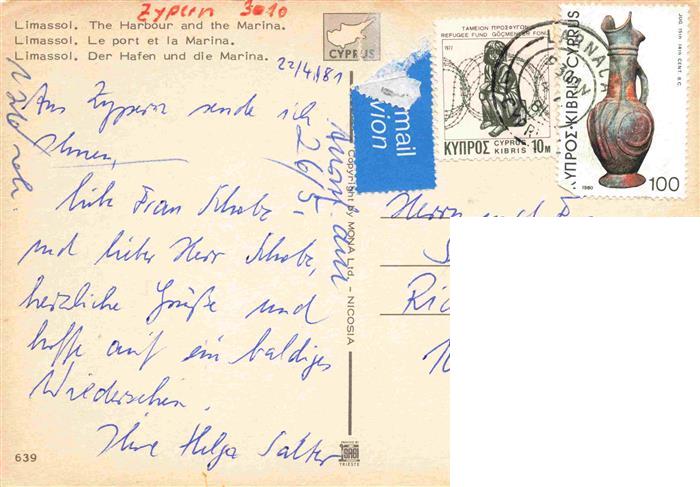 Zypern 3010
Limassol. The Harbour and the Marina.
Limassol. Le port et la Marina.
Limassol. Der Hafen und die Marina.
CYPRUS
22/4/81
Aus Zypern sende ich
Ihnen,
liebe Frau Scholz
und lieber Herr Scholz,
herzliche Grüße und
hoffe auf ein baldiges
Wiedersehen.
Ihre Helga Salter
639
26/5-
Copyright by MONA Ltd. - NICOSIA
PRINTED BY
SAGI
TRIESTE
mail
avion
ΤΑΜΕΙΟΝ ΠΡΟΣΦΥΓΩΝ
REFUGEE FUND GÖÇMENLER FONU
1977
ΚΥΠΡΟΣ CYPRUS KIBRIS 10M
LARNACA
ΚΥΠΡΟΣ-KIBRIS-CYPRUS
JUG 15th 14th CENT. B.C.
1980
100
Herrn und